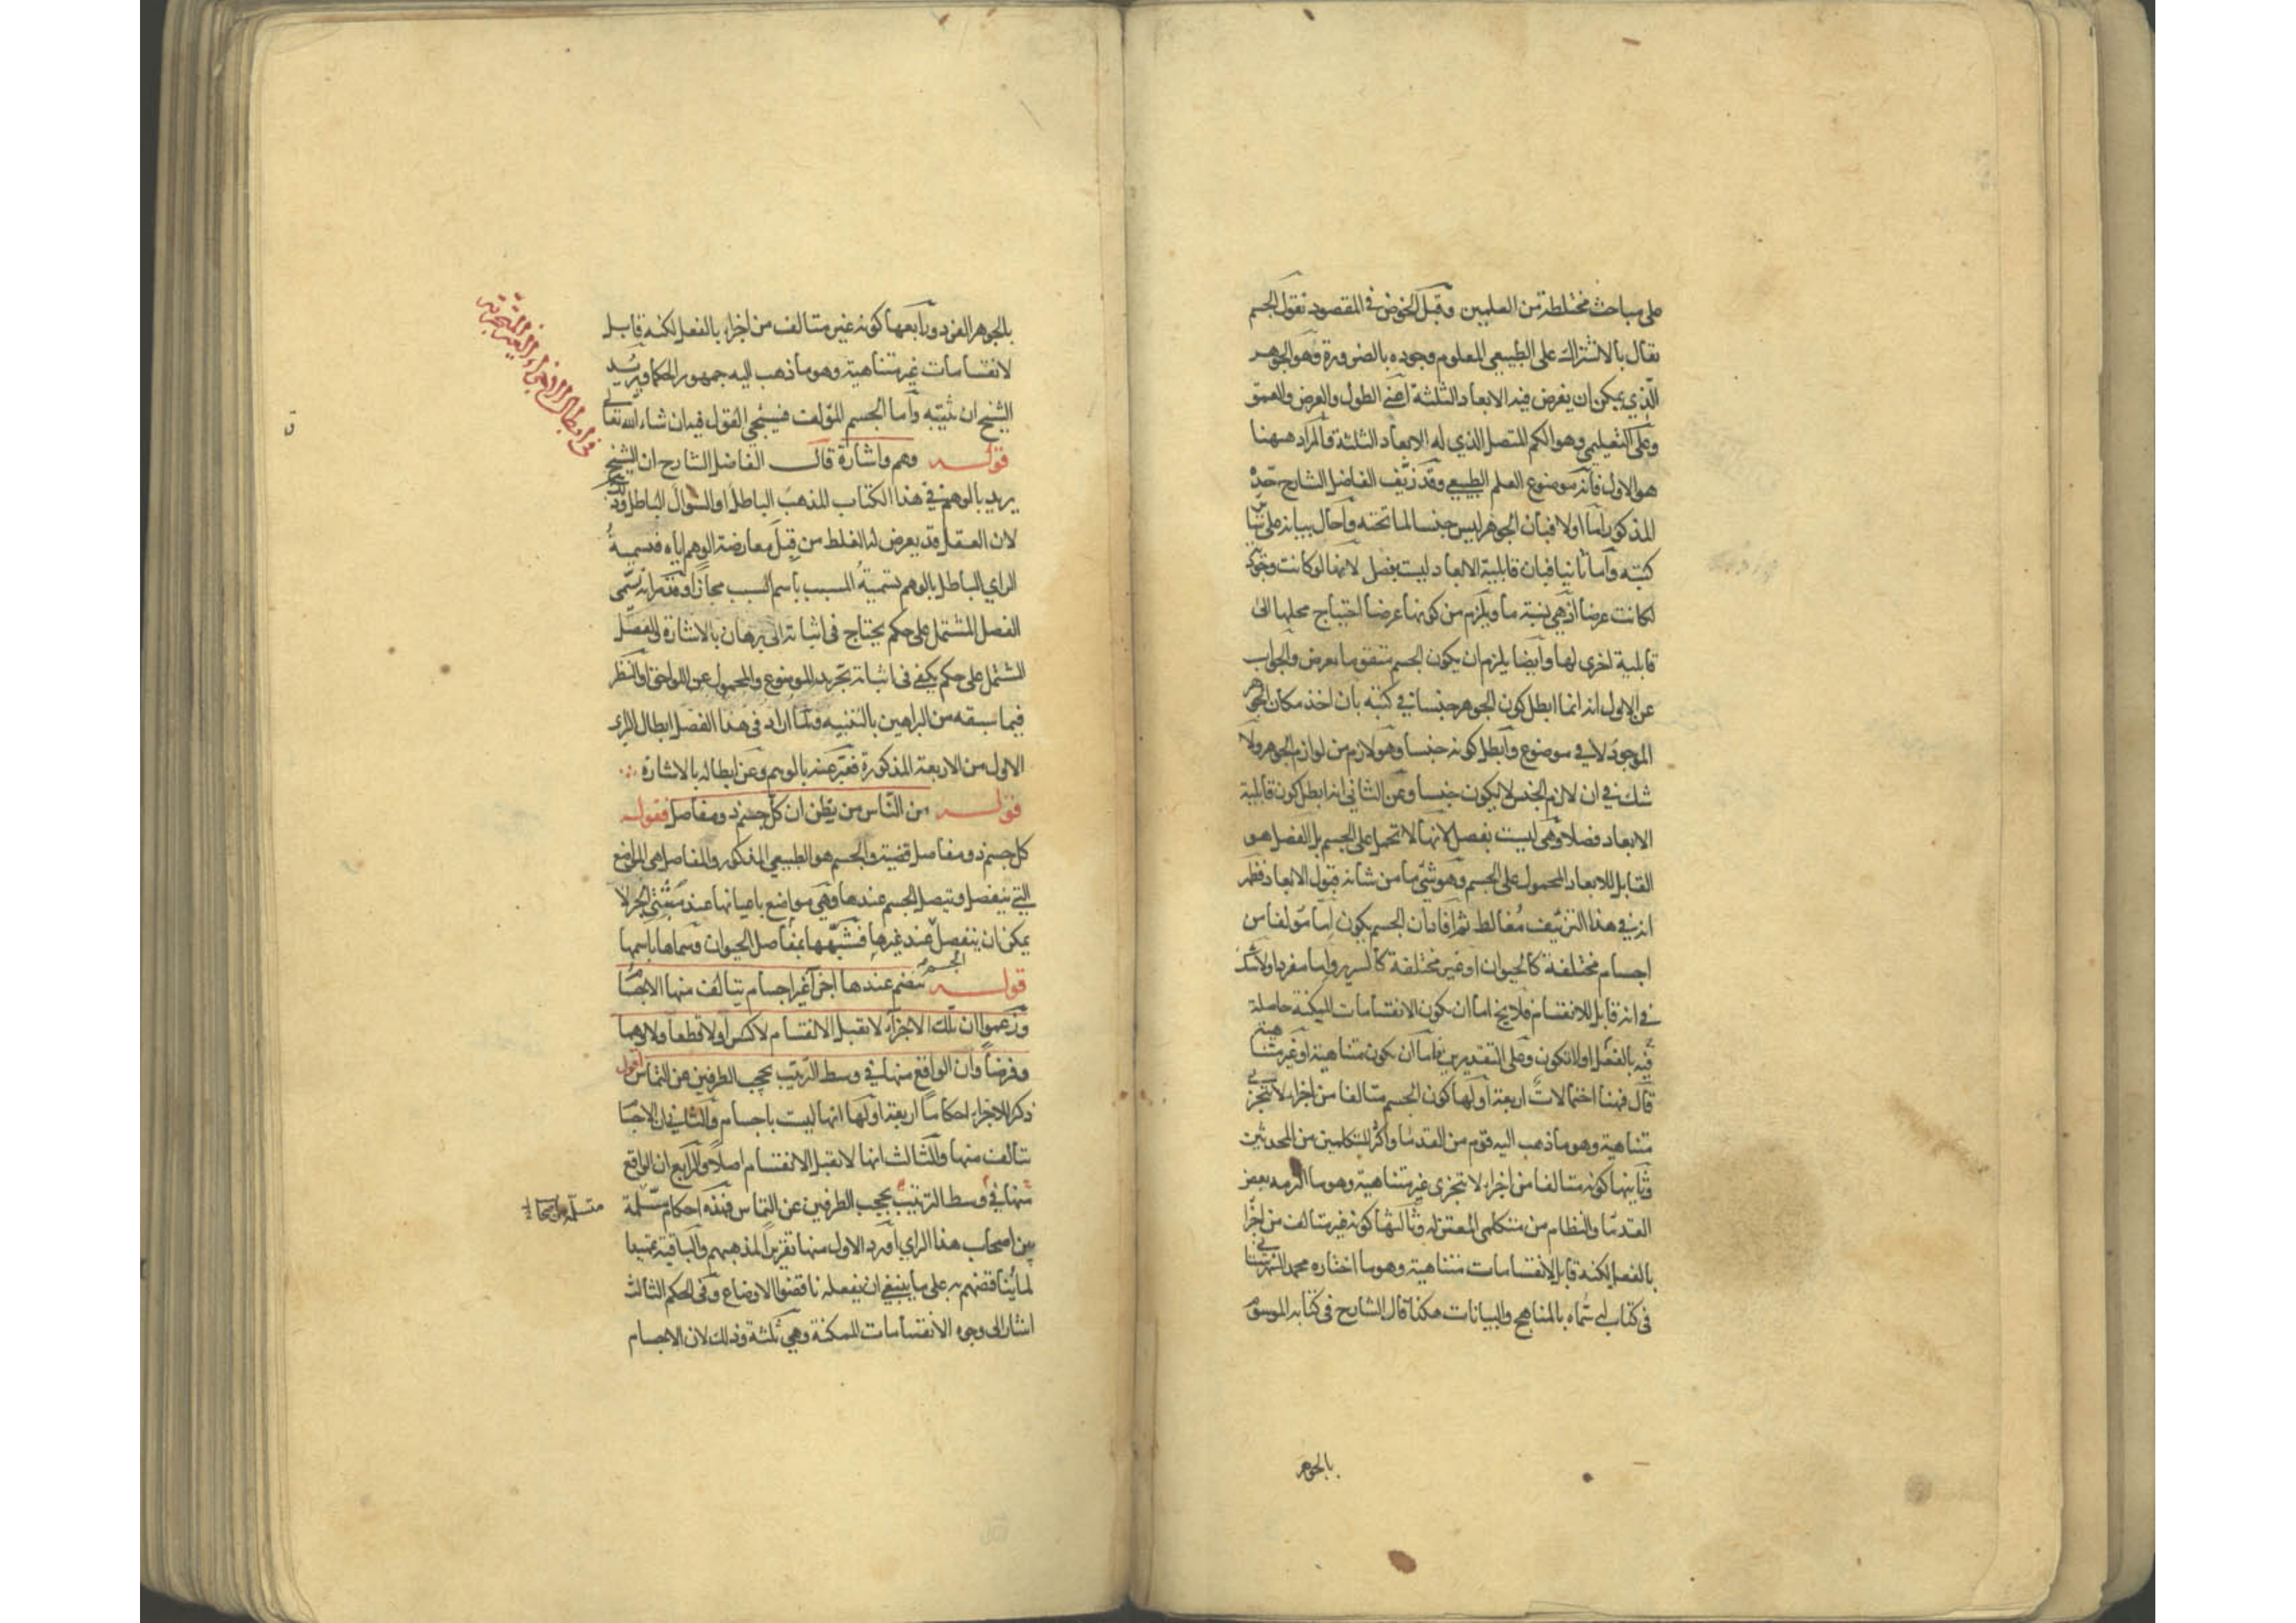 على مباحث مختلطة من العلمين وقبل الخوض في المقصود نقول الجسم
يقال بالاشتراك على الطبيعي المعلوم وجوده بالضرورة وهو الجوهر
الذي يمكن ان يفرض فيه الابعاد الثلثة اعني الطول والعرض والعمق
وعلى التعليمي وهو الكم المتصل الذي له الابعاد الثلثة فالمراد ههنا
هو الاول فانه موضوع العلم الطبيعي وقد زيّف الفاضل الشارح حدّه
المذكور اما اولا فبان الجوهر ليس جنسا لما تحته واحال بيانه على سائر
كتبه واما ثانيا فبان قابلية الابعاد ليست بفصل لانها لو كانت وجودية
لكانت عرضا اذ هي نسبة ما ويلزم من كونها عرضا احتياج محلها الى
قابلية اخرى لها وايضا يلزم ان يكون الجسم متقوما بعرض والجواب
عن الاول انه انما ابطل كون الجوهر جنسا في كتبه بان اخذ مكان الجوهر
الموجود لا في موضوع وابطل كونه جنسا وهو لازم من لوازم الجوهر ولا
شك في ان لازم الجنس لا يكون جنسا وعن الثاني انه ابطل كون قابلية
الابعاد فصلا وهي ليست بفصل لانها لا تحمل على الجسم بل الفصل هو
القابل للابعاد المحمول على الجسم وهو شئ ما من شانه قبول الابعاد فظهر
انه في هذا التزييف مُغالط ثم افاد ان الجسم يكون اما مؤلفا من
اجسام مختلفة كالحيوان او غير مختلفة كالسرير واما مفردا ولا شك
في انه قابل للانقسام فلا يخ اما ان يكون الانقسامات الممكنة حاصلة
فيه بالفعل او لا تكون وعلى التقديرين فاما ان يكون متناهية او غير متناهية
قال فههنا احتمالات اربعة اولها كون الجسم متالفا من اجزاء لا تتجزى
متناهية وهو ما ذهب اليه قوم من القدما واكثر المتكلمين من المحدثين
وثانيها كونه متالفا من اجزاء لا تتجزى غير متناهية وهو ما التزمه بعض
القدما والنظام من متكلمى المعتزلة وثالثها كونه غير متالف من اجزا
بالفعل لكنه قابل لانقسامات متناهية وهو ما اختاره محمد الشهرستاني
في كتاب له سماه بالمناهج والبيانات هكذا قال الشارح في كتابه الموسوم
بالجوهر
بالجوهر الفرد ورابعها كونه غير متالف من اجزاء بالفعل لكنه قابل
لانقسامات غير متناهية وهو ما ذهب اليه جمهور الحكما ويريد
الشيخ ان يثبته واما الجسم المؤلف فسيجئ القول فيه ان شاء الله تعالى
قوله وهم واشارة قال الفاضل الشارح ان الشيخ
يريد بالوهم في هذا الكتاب المذهب الباطل او السوال الباطل وذلك
لان العقل قد يعرض له الغلط من قِبَل معارضة الوهم اياه فتسمية
الراي الباطل بالوهم تسميةُ المسبب باسم السبب مجازا وقد مر انه يسمى
الفصل المشتمل على حكم يحتاج في اثباته الى برهان بالاشارة والفصل
المشتمل على حكم يكفى في اثباته تجريد الموضوع والمحمول عن اللواحق او النظر
فيما سبقه من البراهين بالتنبيه ولما اراد في هذا الفصل ابطال الراي
الاول من الاربعة المذكورة فعبر عنه بالوهم وعن ابطاله بالاشارة
قوله من الناس من يظن ان كل جسم ذو مفاصل فقوله
كل جسم ذو مفاصل قضية والجسم هو الطبيعي المذكور والمفاصل هي المواضع
التي ينفصل ويتصل الجسم عندها وهي مواضع باعيانها عند مثبتي الجزء لا
يمكن ان ينفصل عند غيرها فشبّهها بمفاصل الحيوان وسماها باسمها
الجسم
قوله تنضم عندها اجزاء غير اجسام يتالف منها الاجسام
وزعموا ان تلك الاجزاء لا تقبل الانقسام لا كسرا ولا قطعا ولا وهما
وفرضا وان الواقع منها في وسط الترتيب يحجب الطرفين عن التماس اقول
ذكر للاجزاء احكاما اربعة اولها انها ليست باجسام والثاني ان الاجسام
تتالف منها والثالث انها لا تقبل الانقسام اصلا والرابع ان الواقع
منها في وسط الترتيب يحجب الطرفين عن التماس فهذه احكام مسلّمة
بين اصحاب هذا الراي اورد الاول منها تقريرا لمذهبهم والباقية تمهيدا
لما يناقضهم به على ما ينبغي ان يفعله ناقضوا الاوضاع وفى الحكم الثالث
اشار الى وجوه الانقسامات الممكنة وهي ثلثة وذلك لان الاجسام